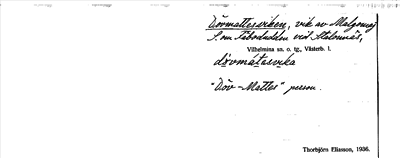 Dövmattesviken, vik av Malgomaj
S. om Täboudden vid Stalonnäs,
Vilhelmina sn. o. tg., Västerb. l.
dövmátasvika
"Döv-Mattes" person.
Thorbjörs Eliasson, 1936.